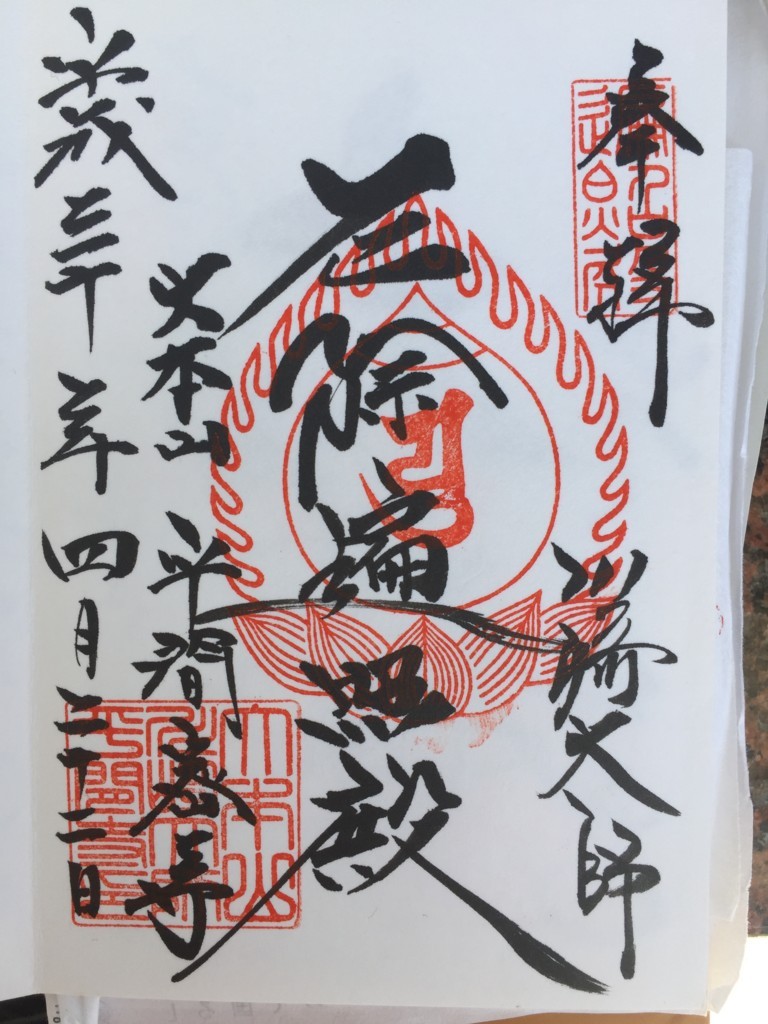 奉拝
川崎大師
厄除遍照殿
大本山 平間密寺
平成三十年四月二十二日